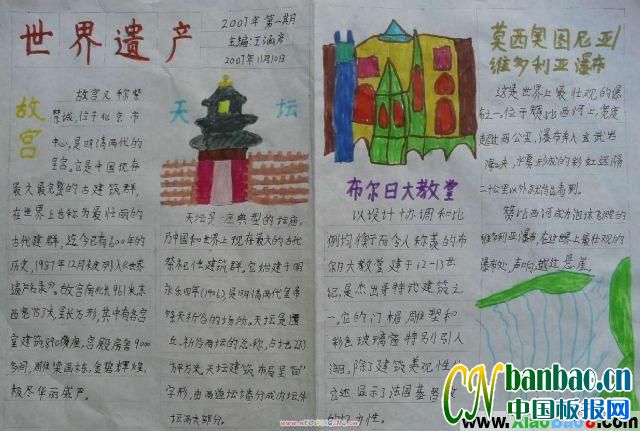 世界遗产
2007年第一期
主编:王涵彦
2007年11月10日
故宫
故宫又称紫
禁城,位于北京市
中心,是明清两代的
皇宫。它是中国现存
最大最完整的古建筑群,
在世界上也称为最壮丽的
古代建群,迄今已有600年的
历史,1987年12月被列入《世界
遗产名录》。故宫南北长961米东
西宽753米,呈长方形,其中有各宫
室建筑890幢座,宫殿房舍9000
多间,雕梁画栋,金碧辉煌,
极尽华丽庄严。
天坛
天坛是一座典型的坛庙,
乃中国和世界上现存最大的古代
祭祀性建筑群。它始建于明
永乐四年(1406),是明清两代皇帝
祭天祈谷的场所。天坛是圜
丘、祈谷两坛的总称,占地273
万平方米,天坛建筑布局呈"回"
字形,由两道坛墙分成内坛外
坛两大部分。
布尔日大教堂
以设计协调和比
例均衡而令人称羡的布
尔日大教堂建于12-13世
纪,是杰出哥特式建筑之
一,它的门楣雕塑和
彩色玻璃窗特别引人
注目,除了建筑美观性外,
它还显示了法国基督教
莫西奥图尼亚/
维多利亚瀑布
这是世界上最壮观的瀑
布之一。位于赞比西河上,宽度
超过两公里,瀑布奔入玄武岩
海峡,水雾形成的彩虹远隔
二十公里以外就能看到。
赞比西河成为泡沫飞溅的
维多利亚瀑布,在这世界上最壮观的
瀑布处,声响越过悬崖。
CN banbao.cn
中国板报网
www.XiaoBao8.com